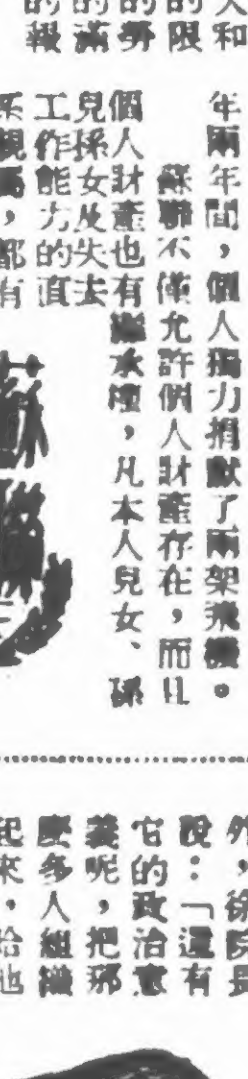 人和
的限
的勞
的滿
的報
年兩年間，個人獨力捐獻了兩架飛機。
蘇聯不僅允許個人財產存在，而且
個人財產也有繼承權，凡本人兒女、孫
兒孫女及失去
工作能力的直
系親屬，都有
蘇
聯
外，徐院長
說：「還有
它的政治意
義呢，把那
麼多人組織
起來，給他